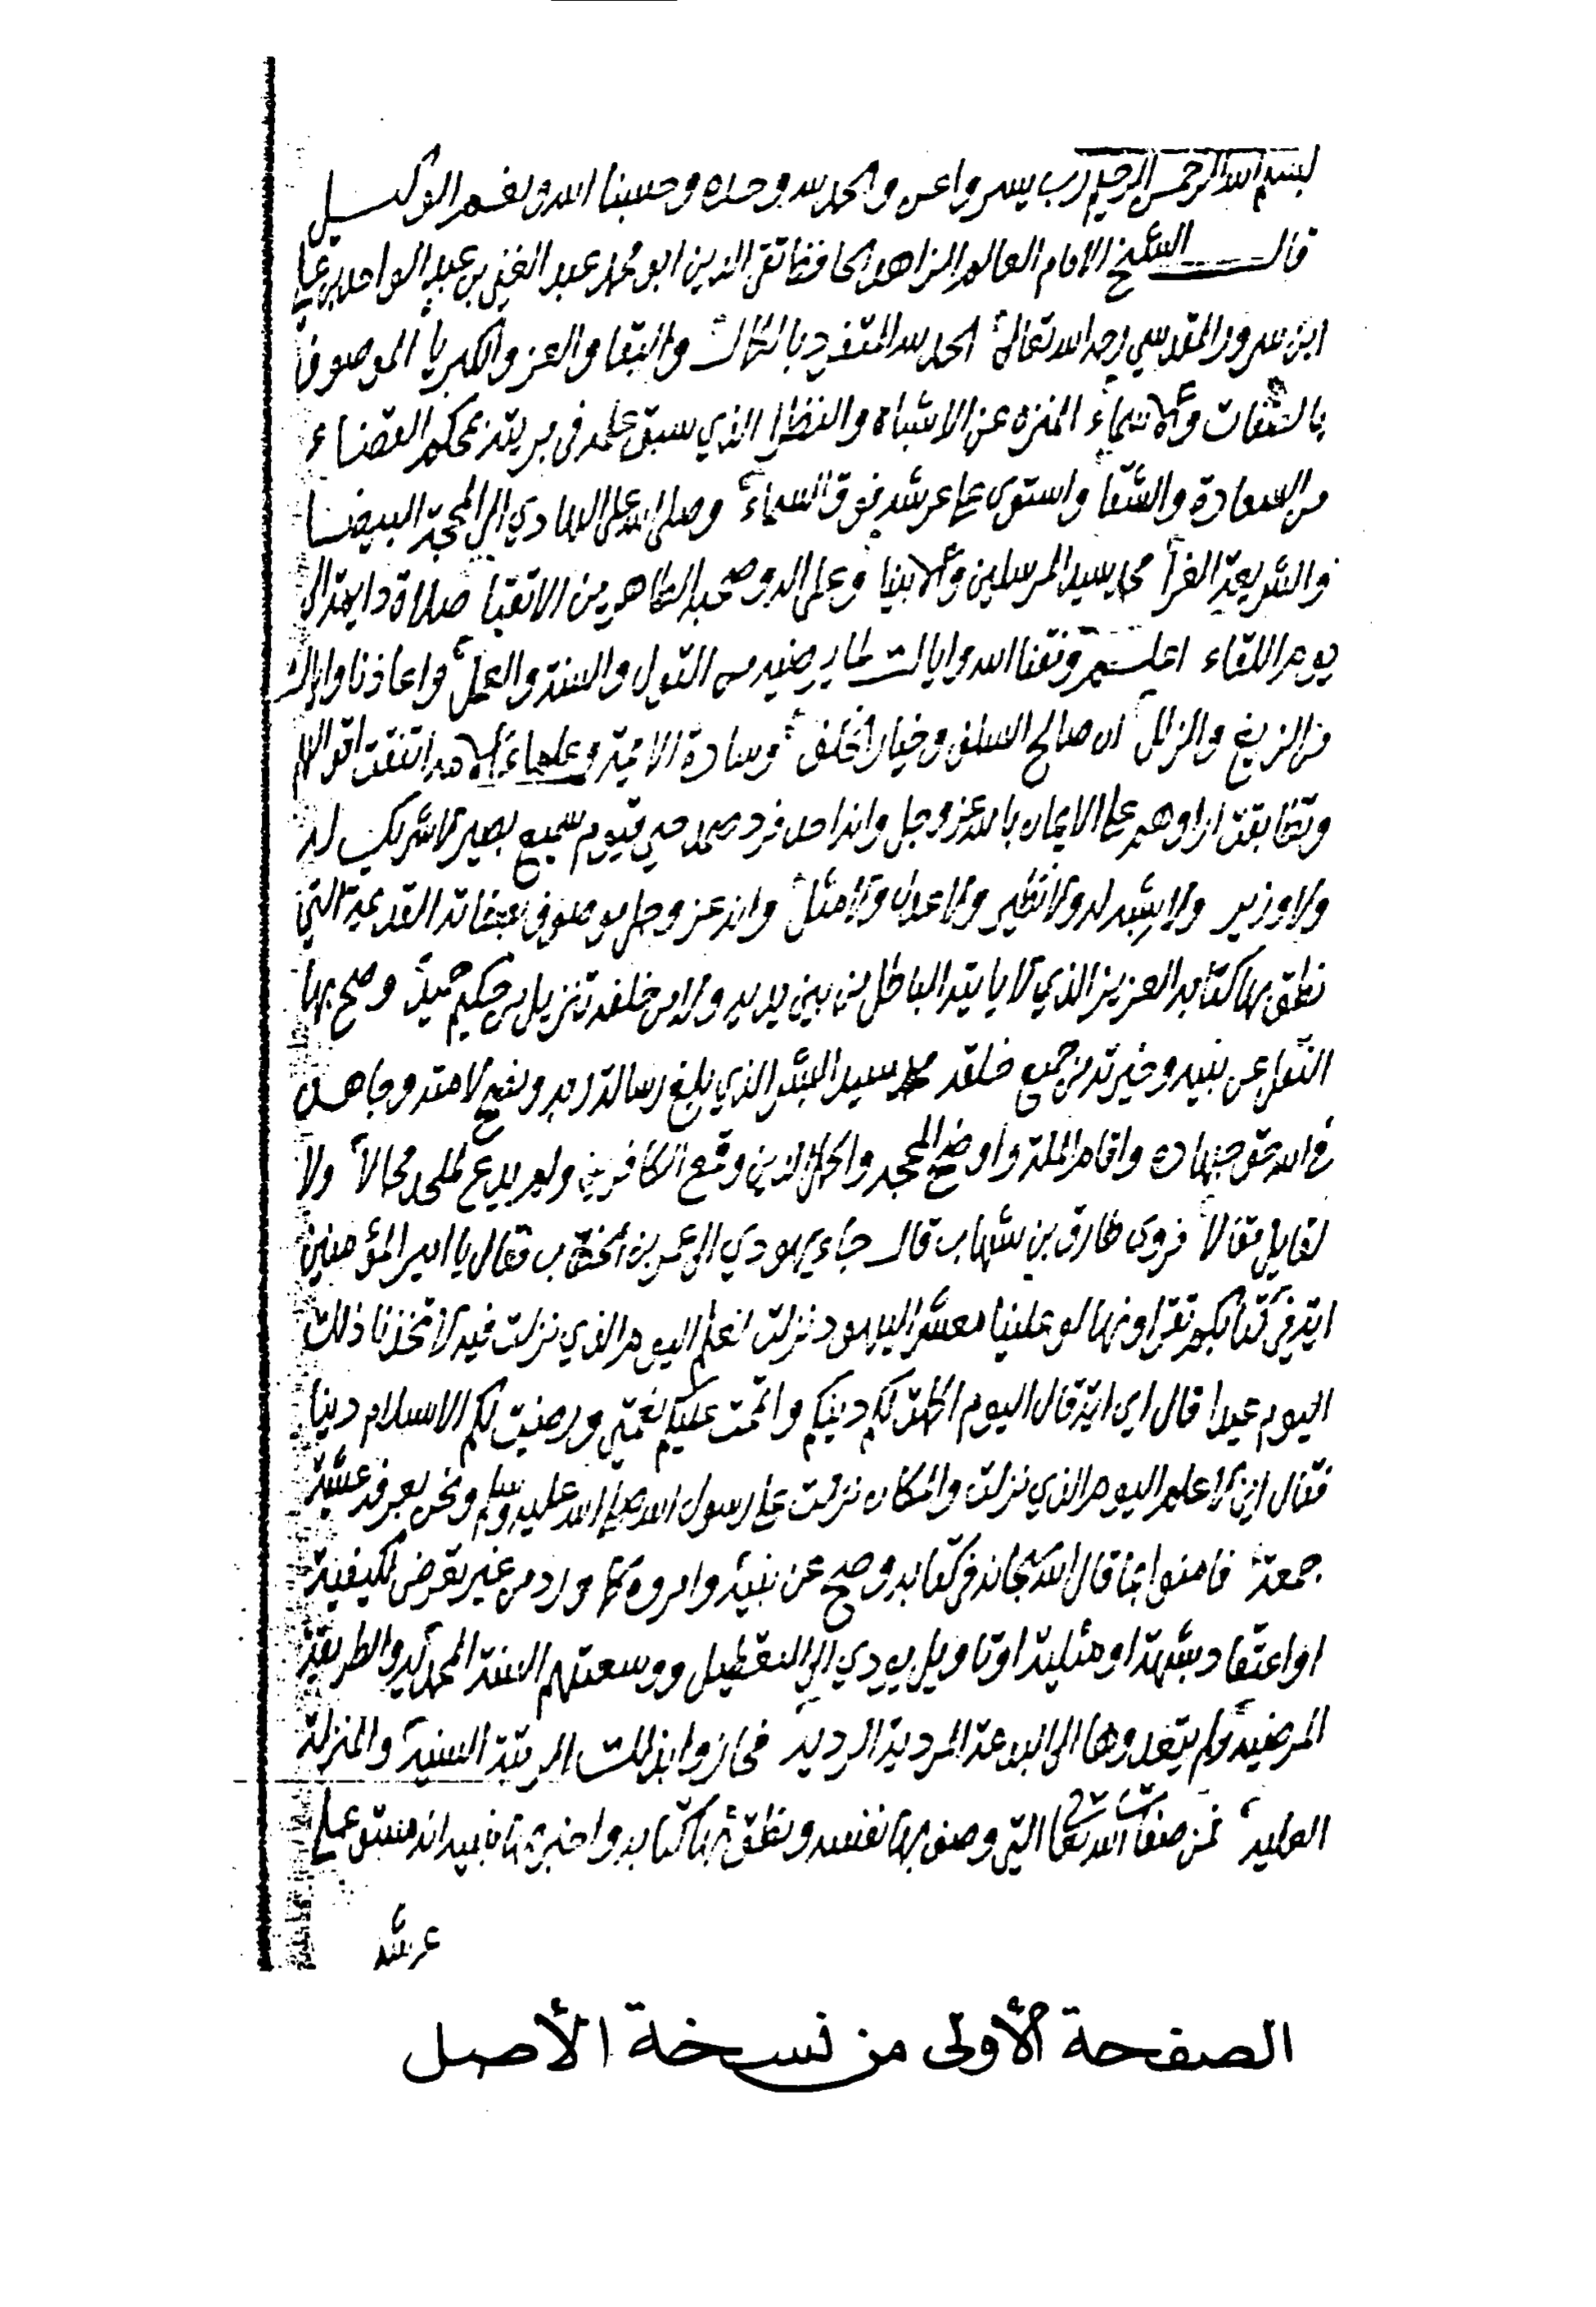 بسم الله الرحمن الرحيم رب يسر واعن والحمد لله وحده وحسبنا الله ونعم الوكيل
قال الشيخ الامام العالم الزاهد الحافظ تقي الدين ابو محمد عبد الغني بن عبد الواحد بن علي
ابن سرور المقدسي رحمه الله تعالى الحمد لله المتفرد بالكمال والبقا والعز والكبريا الموصوف
بالصفات والاسماء المنزه عن الاشباه والنظرا الذي سبق علمه في بريته بمحكم القضاء
من السعادة والشقا واستوى على عرشه فوق السماء وصلى الله على الهادي الى المحجة البيضا
والشريعة الغرا محمد سيد المرسلين والانبيا وعلى اله وصحبه الطاهرين الاتقيا صلاة دايمة الى
يوم اللقاء اعلم وفقنا الله واياك لما يرضيه من القول والنية والعمل واعاذنا واياك
من الزيغ والزلل ان صالح السلف وخيار الخلف وسادة الايمة وعلماء الامة اتفقت اقوالهم
وتطابقت اراوهم على الايمان بالله عز وجل وانه احد فرد صمد حي قيوم سميع بصير لا شريك له
ولا وزير ولا شبيه له ولا نظير ولا عدل ولا مثل وانه عز وجل موصوف بصفاته القديمة التي
نطق بها كتابه العزيز الذي لا ياتيه الباطل من بين يديه ولا من خلفه تنزيل من حكيم حميد وصح بها
النقل عن نبيه وخيرته من جميع خلقه محمد سيد البشر الذي بلغ رسالة ربه ونصح لامته وجاهد
في الله حق جهاده واقام الملة واوضح المحجة واكمل الدين وقمع الكافرين ولم يدع لملحد مجالا ولا
لقايل مقالا فروى طارق بن شهاب قال جاء يهودي الى عمر بن الخطاب فقال يا امير المؤمنين
اية في كتابكم تقراونها لو علينا معشر اليهود نزلت نعلم اليوم الذي نزلت فيه لاتخذنا ذلك
اليوم عيدا قال اي اية قال اليوم اكملت لكم دينكم واتممت عليكم نعمتي ورضيت لكم الاسلام دينا
فقال اني لاعلم اليوم الذي نزلت والمكان نزلت على رسول الله صلى الله عليه وسلم ونحن بعرفة عشية
جمعة فامنوا بما قال الله سبحانه في كتابه وصح عن نبيه وامروه كما ورد من غير تعرض لكيفية
او اعتقاد شبهة او مثلية او تاويل يودي الى التعطيل ووسعتهم السنة المحمدية والطريقة
المرضية ولم يتعدوها الى البدعة المردية الردية فحازوا بذلك الرتبة السنية والمنزلة
العلية فمن صفات الله تعالى التي وصف بها نفسه ونطق بها كتابه واخبر بها نبيه انه مستو على
عرشه
الصفحة الأولى من نسخة الأصل